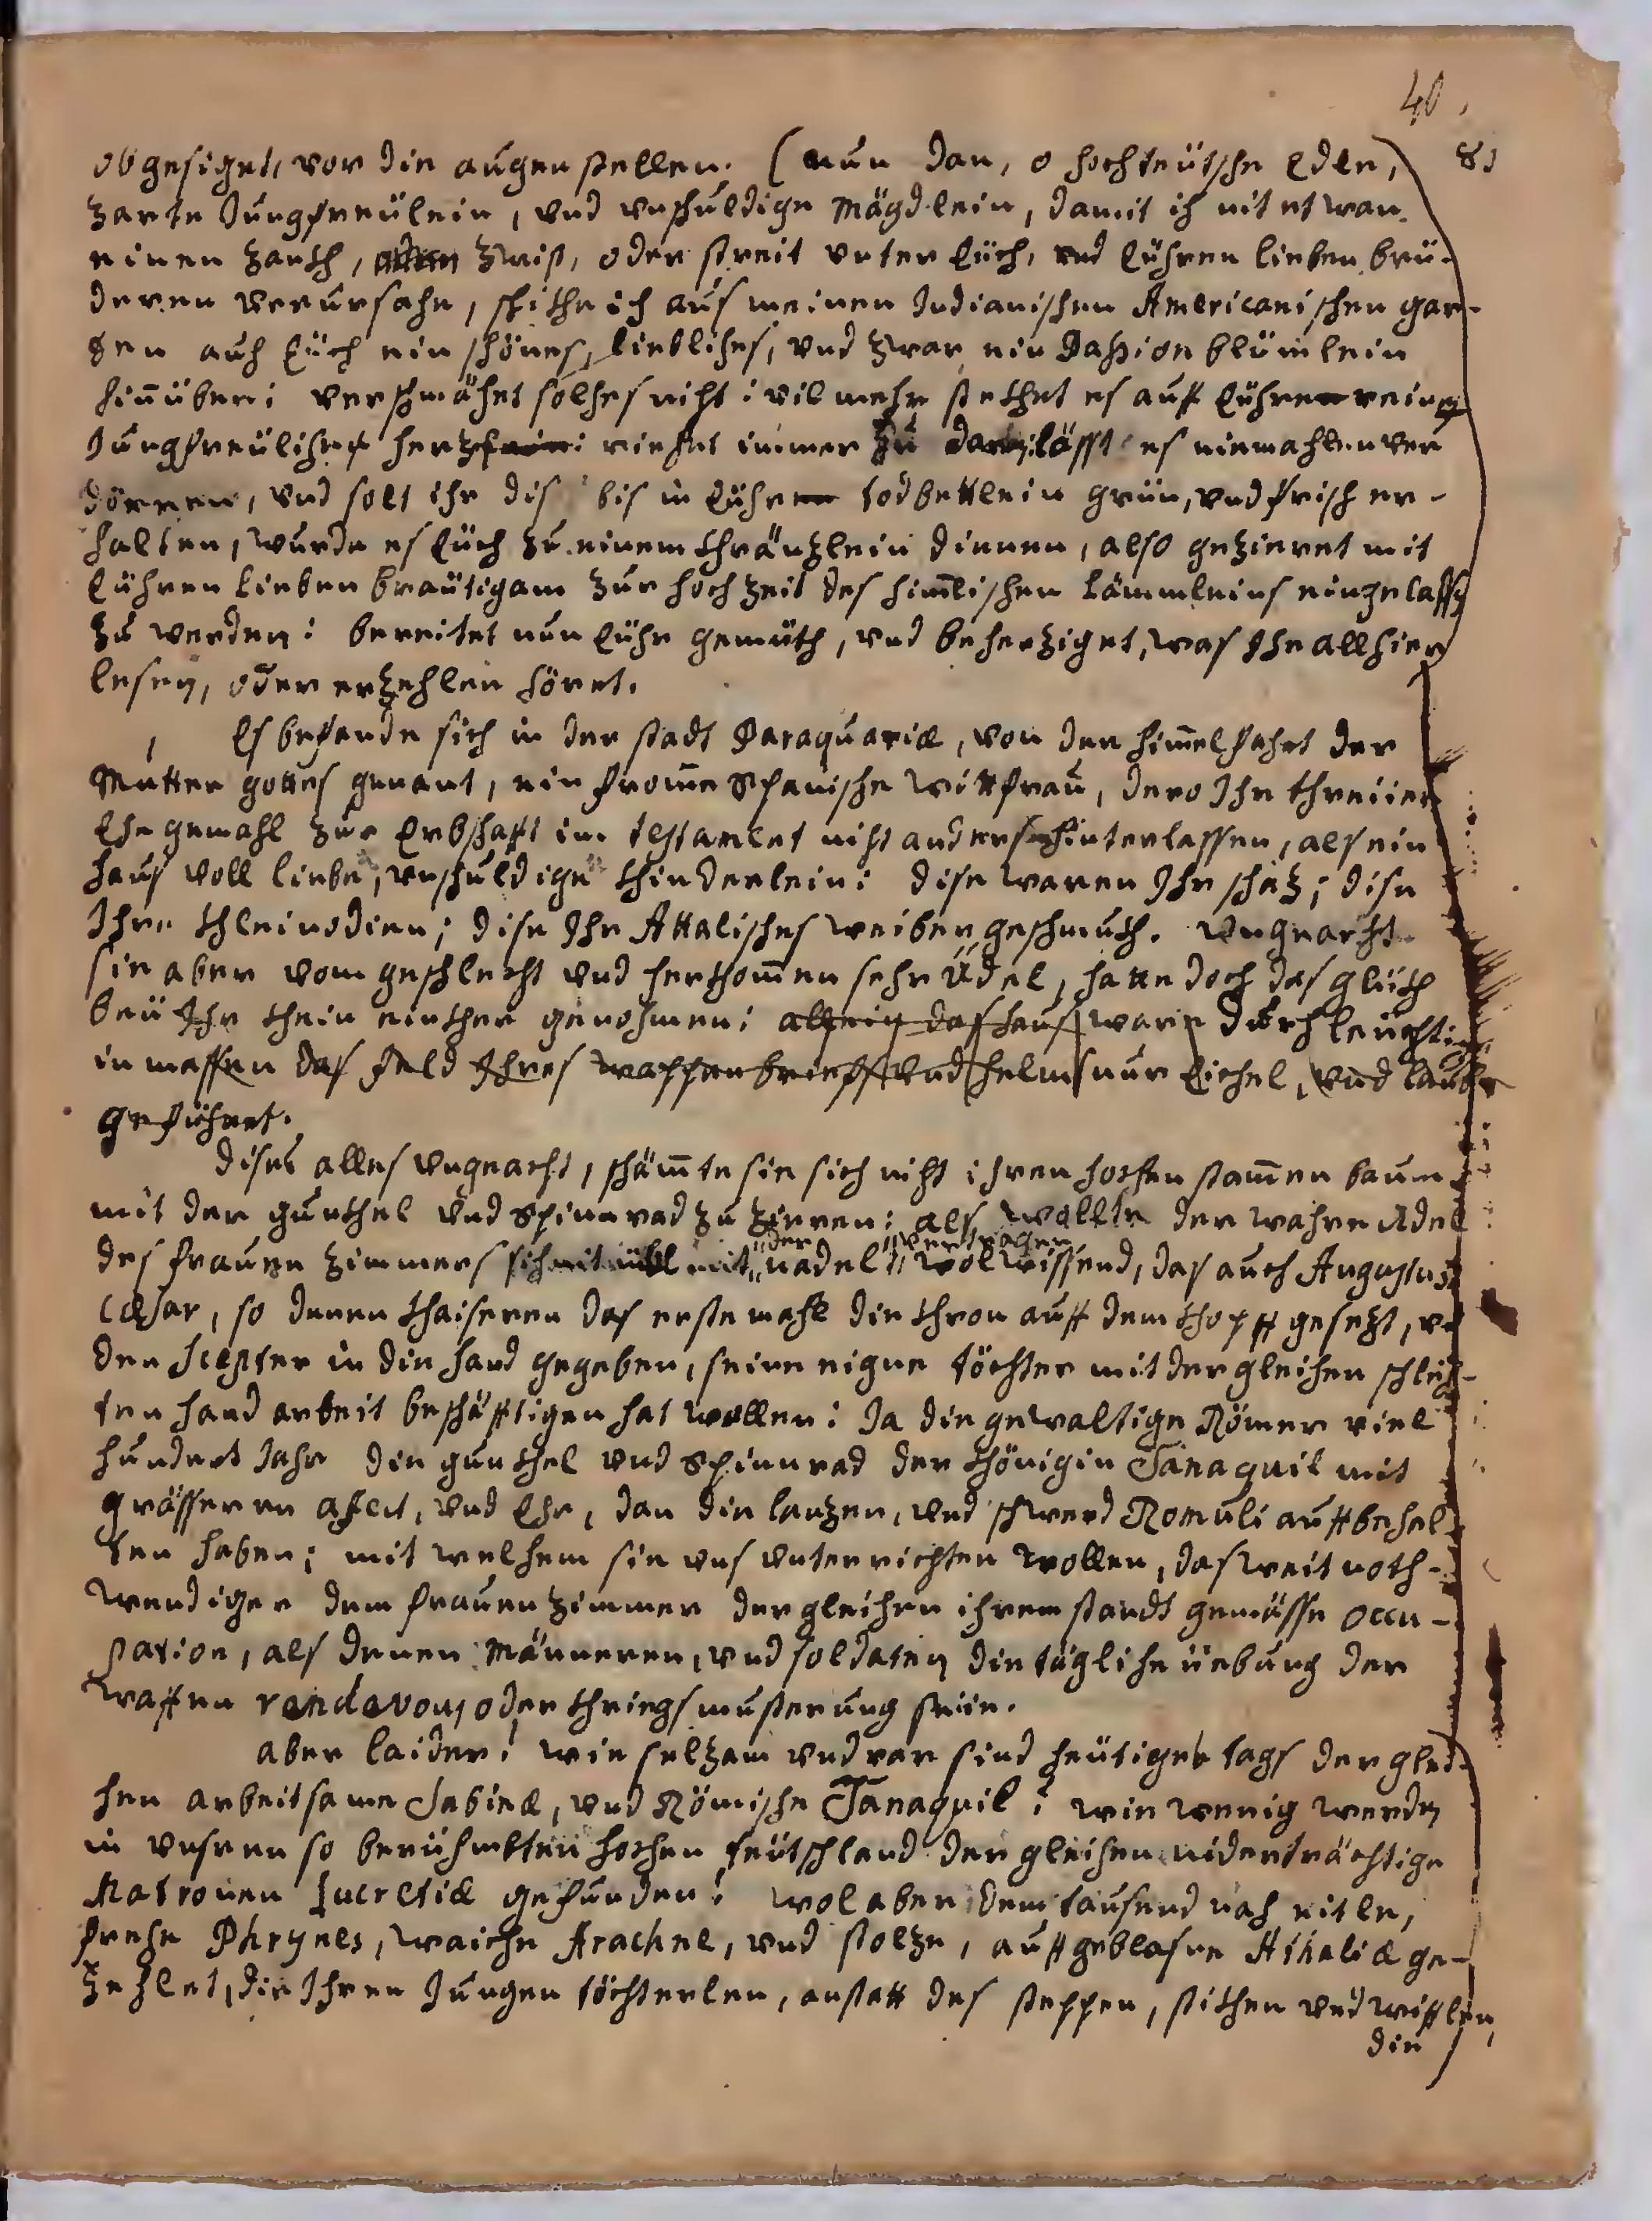 40.
81
obgesiget, vor die augen stellen. (nun dan, o hochteütsche Edle,
zarte Jungfreülein, vnd vnschuldige Mägdlein, damit ich nit etwan
einen zanth, zwist, oder streit vnter Eüch, vnd Eühren lieben brü-
deren verursahe, schithe ich aus meinen Indianischen Americanischen gar-
ten auch Eüch ein schönes, liebliches, vnd zwar ein Passion blümlein
hinüber; verschmähet solches nicht; vilmehr stethet es auff Eühren reines
Jungfreülihes hertz: riehet immer zu lässt es niemahlen ver
dörren, vnd solt ihr dis bis in Eühr todbettlein grün, vnd frisch er-
halten, wurde es Eüch zu einem thräntzlein dienen, also gezieret mit
Eühren lieben bräutigam zur hochzeit des himlischen Lämmleins eingelassen
zu werden: bereitet nun Eühr gemüth, vnd behertziget, was Ihr allhier
lesen, oder erzehlen höret.
Es befande sich in der stadt Paraquariæ, von der himmelfahrt der
Mutter gottes genant, ein fromme Spanische wittfrau, dero Ihr threüer
Ehegemahl zur Erbschafft im testament niht anders hinterlassen, als ein
haus voll liebe, vnschuldige thinderlein: dise waren Ihr schatz; dise
Ihre thleinodien; dise Ihr Attalisches weiber geschmuth. vngeacht
sie aber vom geschlecht vnd herthommen sehr Adel, hatte doch das glüth
beÿ Ihr thein einther genohmen: allein das haus ware durchleuchtig
in massen das feld Ihres wappenbrieffs vnd helms nur Eichel, vnd laube
geführet.
dises alles vngeacht, schämte sie sich niht ihren hochen stammen baum
mit der gunthel vnd Spinnrad zu zieren: als wollte der wahre Adel
des frauenzimmers sich nit übl mit der nadel vertragen wolwissend, das auch Augustus
Cæsar, so denen thaiseren das erste mahl die thron auff dem thopff gesetzt, vnd
den scepter in die hand gegeben, seine eigne töchter mit dergleichen schleich-
ten hand arbeit beschäfftigen hat wollen: Ja die gewaltige Römer viel
hundert Jahr die gunthel vnd Spinnrad der thönigin Tanaquil mit
grösseren afect, vnd Ehr, dan die lantzen, vnd schwerd Romuli auffbehal-
ten haben; mit welchem sie vns vnterrichten wollen, das weit noth-
wendiger dem frauenzimmer dergleichen ihrem standt gemässe occu-
pation, als denen Männeren, vnd soldaten die tägliche üebung der
waffen rendavous oder thriegsmusterung seÿe.
aber laider! wie seltzam vnd rar sind heütiges tags derglei-
hen arbeitsame Sabinæ, vnd Römische Tanaquil! wie wenig werden
in vnseren so berühmbten hochen teütschland dergleichen niderträchtige
Matronen Lucretiæ gefunden! wol aber dem tausend nah eitle,
freche Phrynes, waiche Arachnes, vnd stoltze, auffgeblasne Athaliæ ge-
zehlet, die Ihren Jungen töchterlen, anstatt des steppen, stithen vnd wifflen,
die